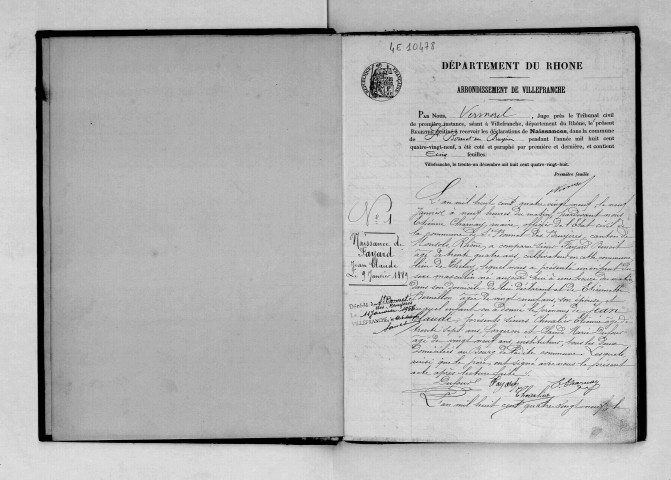 4E 10478
DÉPARTEMENT DU RHONE
ARRONDISSEMENT DE VILLEFRANCHE
PAR NOUS, Vermorel, Juge près le Tribunal civil
de première instance, séant à Villefranche, département du Rhône, le présent
Registre destiné à recevoir les déclarations de Naissances, dans la commune
de St Bonnet pendant l'année mil huit cent
quatre-vingt-neuf, a été coté et paraphé par première et dernière, et contient
Cinq feuilles.
Villefranche, le trente-un décembre mil huit cent quatre-vingt-huit.
Première feuille
N° 1
Naissance de
Fayard
Jean Claude
Le 9 Janvier 1889
L'an mil huit cent quatre vingt neuf, le neuf
Janvier à neuf heures du matin, pardevant nous
Etienne Charnay maire, officier de l'état civil de
la commune de St Bonnet des Bruyères, canton de
Monsols, Rhône, a comparu Fayard Benoit
âgé de trente quatre ans, cultivateur en cette commune
lequel nous a présenté un enfant du
sexe masculin né
dans son domicile de lui déclarant et de
âgée de vingt cinq ans, son épouse, et
auquel enfant a donné les prénoms de Jean
Claude, présents Chevalier
trente sept ans, et Claude Marie Dufour
âgé de vingt ans instituteur, tous les deux
domiciliés au Bourg de ladite commune. Lesquels
ainsi que le père ont signé avec nous le présent
acte après lecture faite.
Dufour Fayard Charnay
Chevalier
L'an mil huit cent quatre vingt neuf, le